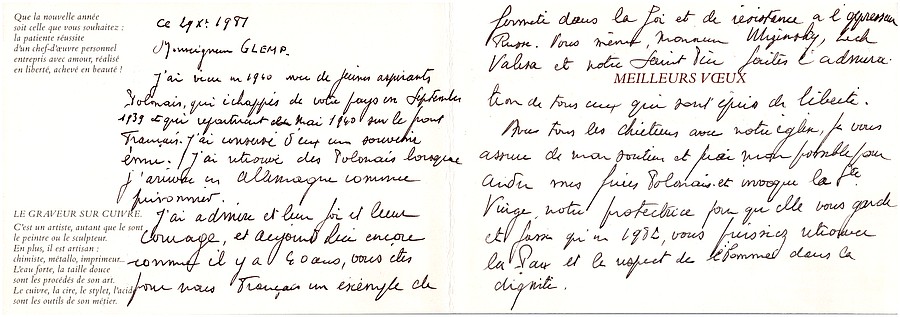 Que la nouvelle année
soit celle que vous souhaitez :
la patiente réussite
d'un chef-d'œuvre personnel
entrepris avec amour, réalisé
en liberté, achevé en beauté !
ce 29 Xe 1981
Monseigneur GLEMP.
J'ai vécu en 1940 avec de jeunes aspirants
Polonais, qui échappés de votre pays en Septembre
1939 et qui repartirent en Mai 1940 sur le front
Français. J'ai conservé d'eux un souvenir
ému. J'ai retrouvé des Polonais lorsque
j'arrivai en Allemagne comme
prisonnier.
J'ai admiré et leur foi et leur
Courage, et aujourd'hui encore
comme il y a 40 ans, vous êtes
pour nous Français un exemple de
LE GRAVEUR SUR CUIVRE.
C'est un artiste, autant que le sont
le peintre ou le sculpteur.
En plus, il est artisan :
chimiste, métallo, imprimeur...
L'eau forte, la taille douce
sont les procédés de son art.
Le cuivre, la cire, le stylet, l'acide
sont les outils de son métier.
fermeté dans la foi et de résistance à l'oppresseur
Russe. Vous même, Monsieur Wizinsky, Lech
Valesa et notre Saint Père faites l'admira-
MEILLEURS VŒUX
tion de tous ceux qui sont épris de liberté.
Avec tous les chrétiens avec notre église, je vous
assure de mon soutien et ferai mon possible pour
aider mes frères Polonais. et invoque la Ste
Vierge, notre protectrice pour qu'elle vous garde
et fasse qu'en 1982, vous puissiez retrouver
la Paix et le respect de l'Homme dans la
dignité.